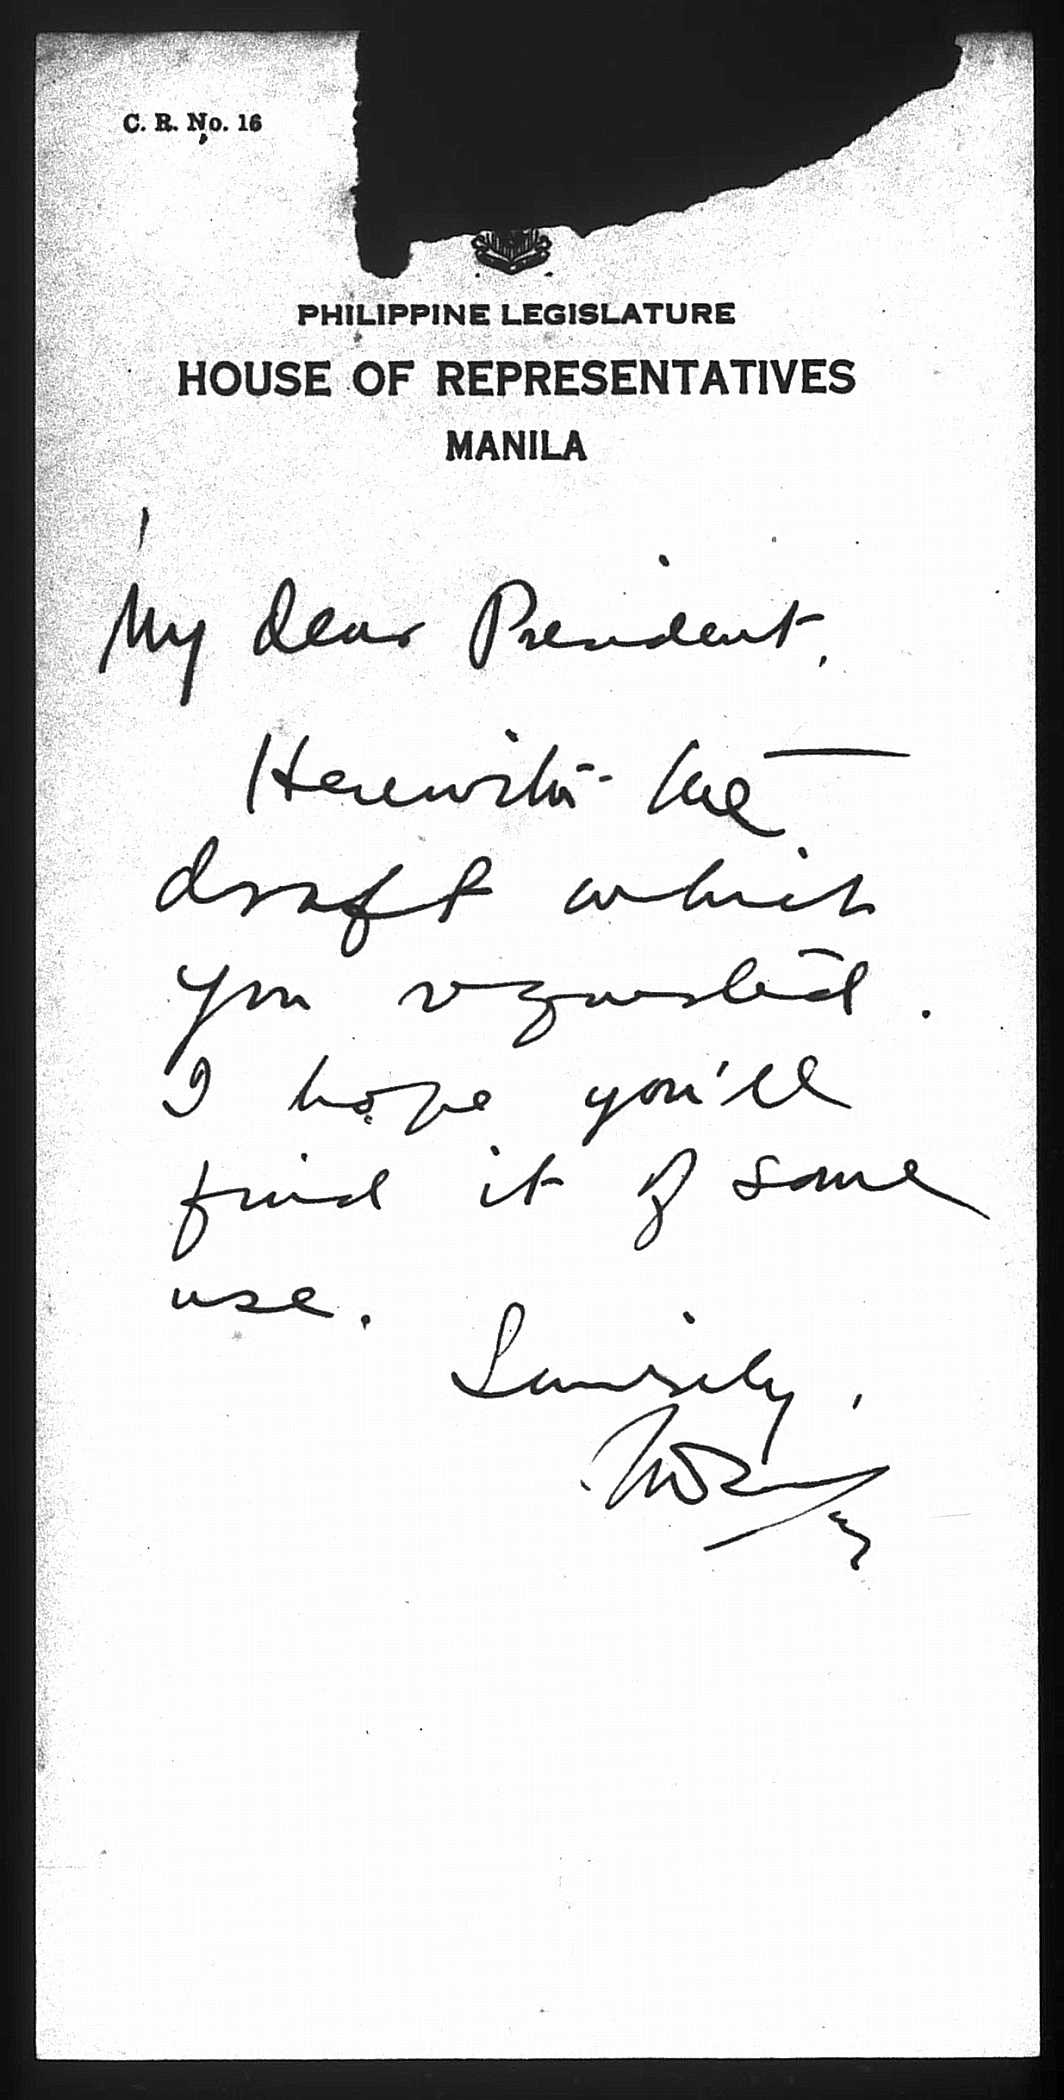 C. R. No. 16
PHILIPPINE LEGISLATURE
HOUSE OF REPRESENTATIVES
MANILA
My dear President,
Herewith the
draft which
you requested.
I hope you'll
find it of some
use.
Sincerely,